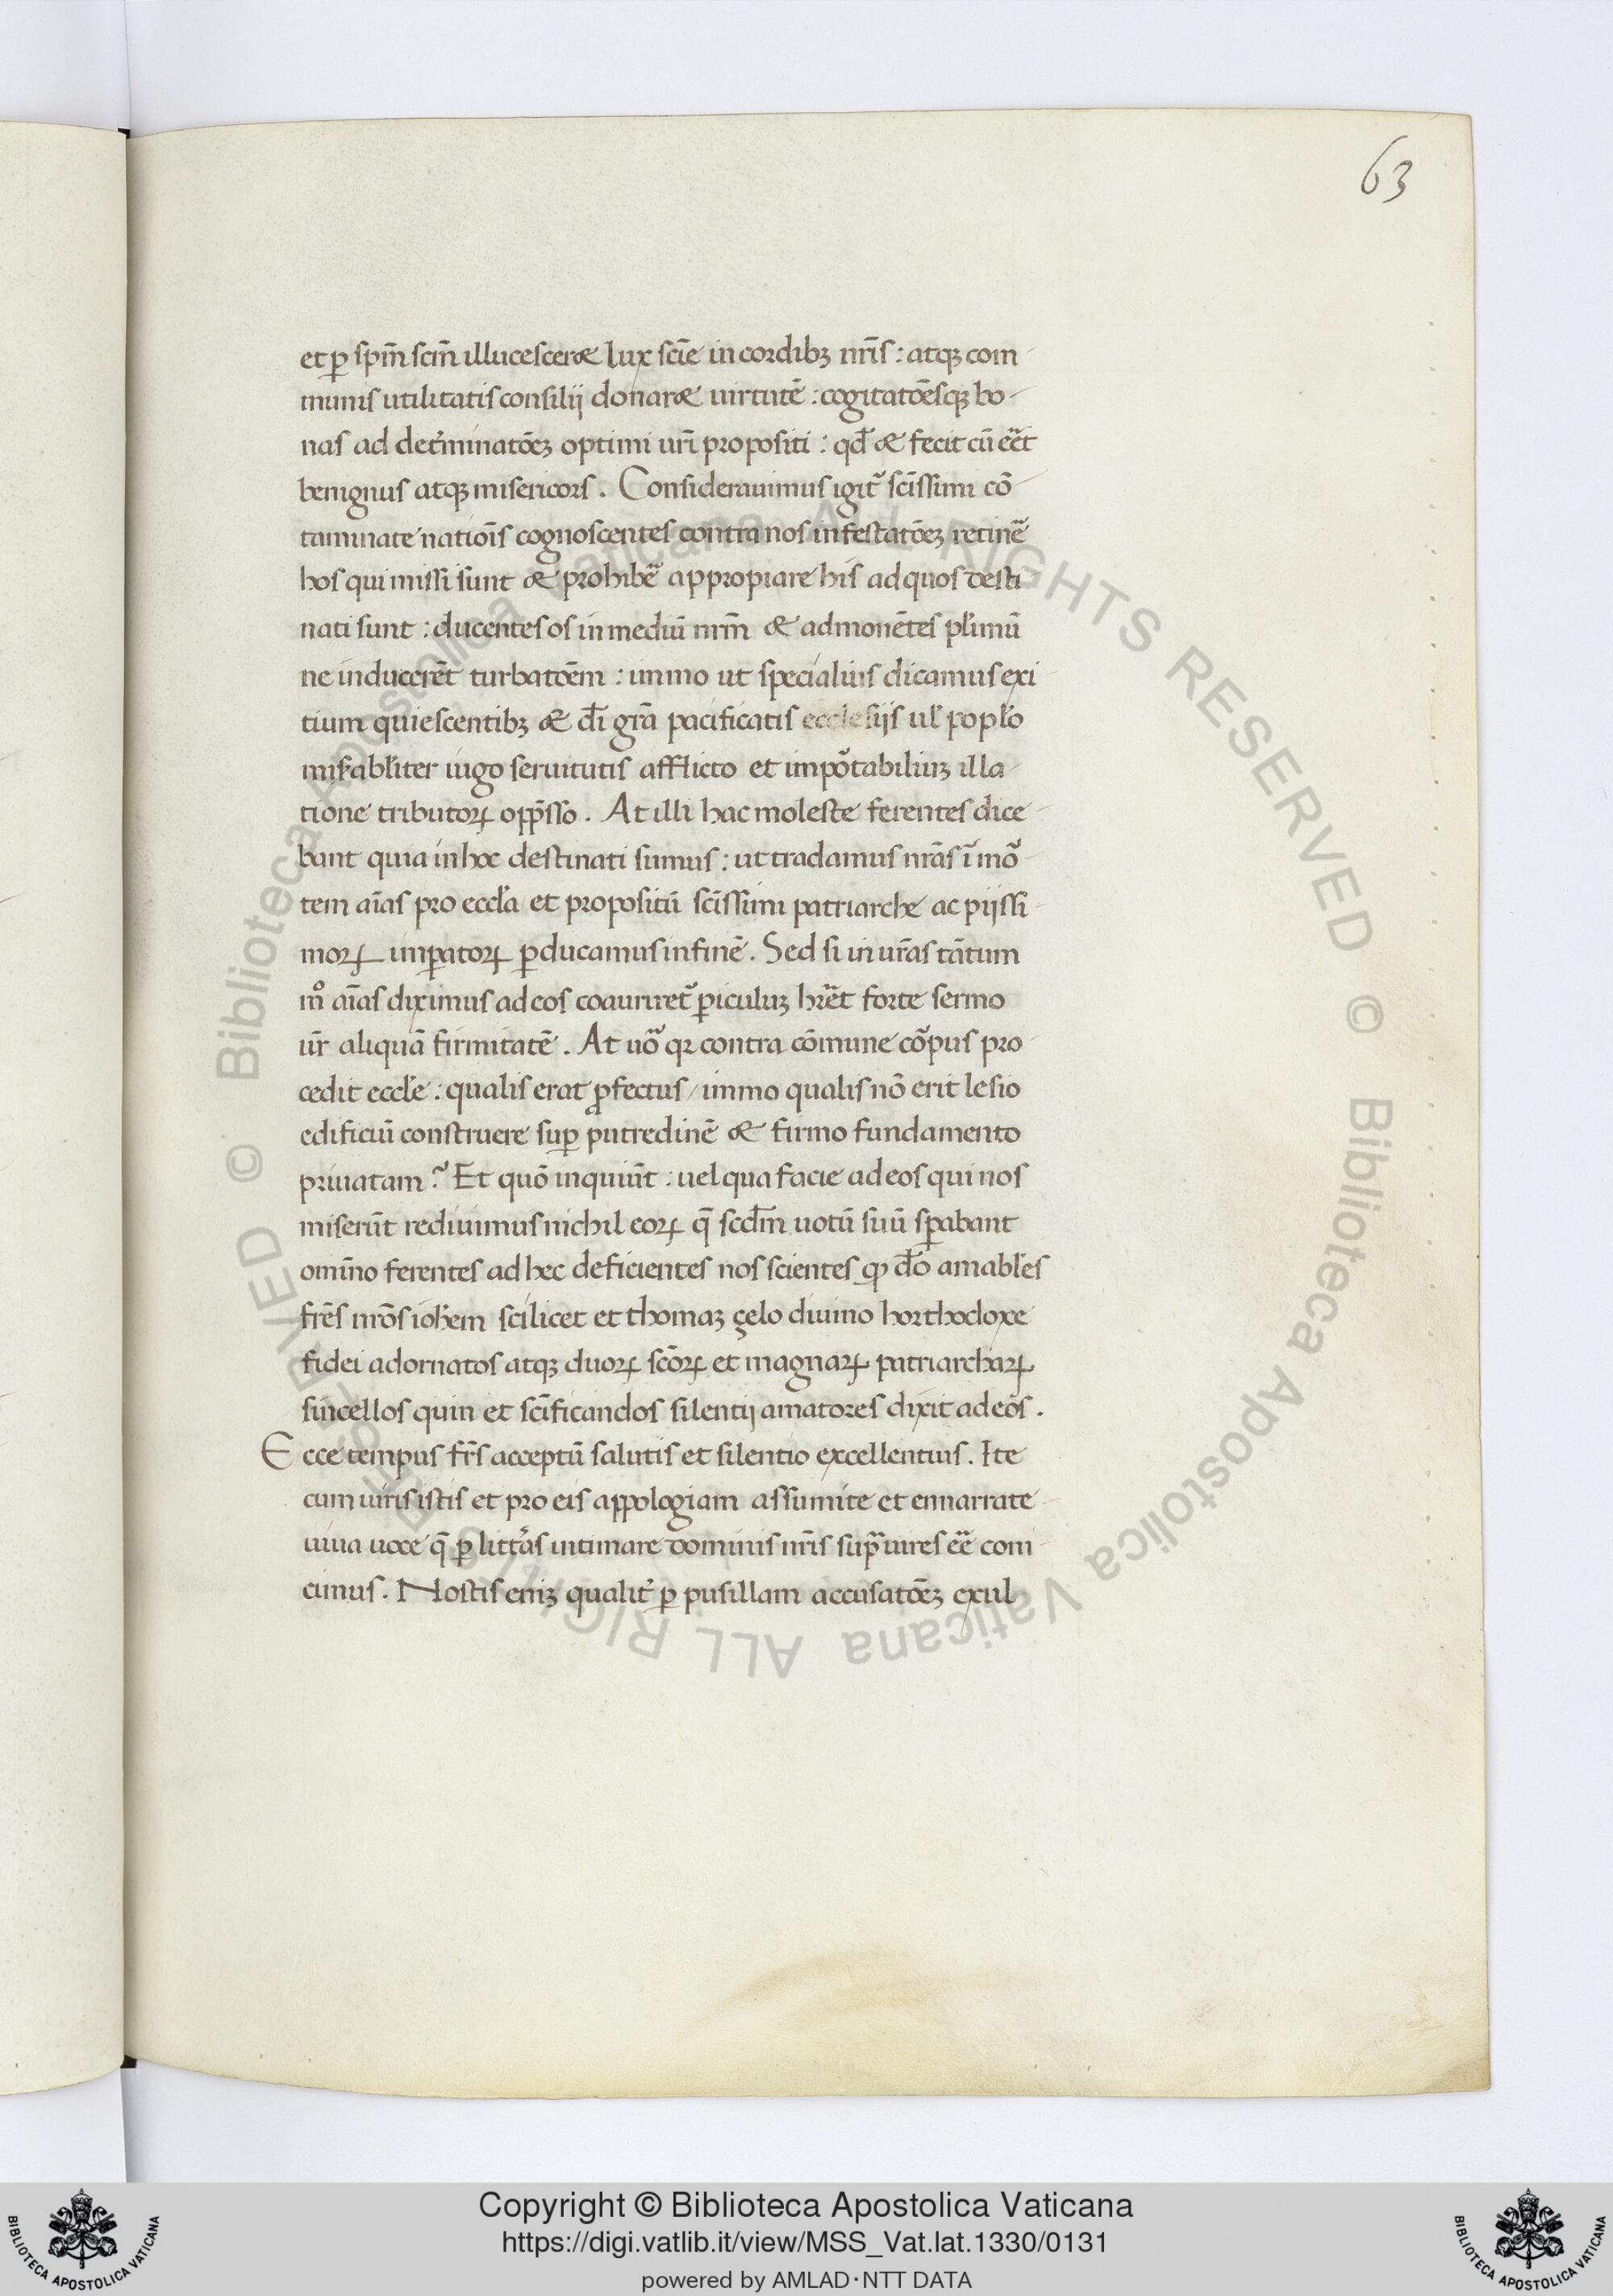 63
et ꝑ sp̄m sc̄m illucesceret lux sc̄ie in cordibꝫ nr̄is : atqꝫ com-
munis utilitatis consilij donaret uirtutē : cogitatōesqꝫ bo-
nas ad det̓minatōeꝫ optimi ur̄i propositi : qđ et fecit cū eēt
benignus atqꝫ misericors . Considerauimus igit᷑ sc̄issimi cō-
taminate natiōis cognoscentes contra nos infestatōeꝫ retinē
hos qui missi sunt et prohibē appropiare his ad quos desti
nati sunt : ducentes os in mediū nr̄m et admonētes pl̓imū
ne inducerēt turbatōem : immo ut specialius dicamus exi
tium quiescentibꝫ et dī gr̄a pacificatis ecclesijs ul̓ popl̓o
mis̓abl̓iter iugo seruitutis afflicto et impōtabiliuꝫ illa-
tione tributoꝝ opp̄sso . At illi hac moleste ferentes dice-
bant quia in hoc destinati sumus : ut tradamus nr̄as ī mō-
tem aīas pro eccl̓a et propositū sc̄issimi patriarche ac pijssi-
moꝝ imꝑatoꝝ ꝑducamus in finē . Sed si in ur̄as tātum
mͦ aīas diximus ad eos coauriret᷑ ꝑiculuꝫ hr̄et forte sermo
ur̄ aliquā firmitatē . At uō qꝛ contra cōmune cōpus pro-
cedit eccl̓e : qualis erat ꝓfectus / immo qualis nō erit lesio
edificiū construere suꝑ putredinē et firmo fundamento
priuatam ? Et quō inquiūt : uel qua facie ad eos qui nos
miserūt rediuimus nichil eoꝝ q̄ scđm uotū suū sꝑabant
omīno ferentes ad hec deficientes nos scientes ꝙ dō amabl̓es
fr̄es nr̄os ioh̄em scilicet et thomaꝫ çelo diuino horthodoxe
fidei adornatos atqꝫ duoꝝ scōꝝ et magnaꝝ patriarchaꝝ
sincellos quin et sc̄ificandos silentij amatores dixit ad eos .
Ecce tempus fr̄s acceptū salutis et silentio excellentius . Ite
cum uiris istis et pro eis appologiam assumite et ennarrate-
uiua uoce q̄ ꝑ litt̓as intimare dominis nr̄is supͣ uires eē coni-
cimus . Nostis eniꝫ qualit̓ ꝑ pusillam accusatōeꝫ exul
© Biblioteca Apostolica Vaticana ALL RIGHTS RESERVED © Biblioteca Apostolica Vaticana ALL RIGHTS RESERVED
BIBLIOTECA APOSTOLICA VATICANA
Copyright © Biblioteca Apostolica Vaticana
https://digi.vatlib.it/view/MSS_Vat.lat.1330/0131
powered by AMLAD·NTT DATA
BIBLIOTECA APOSTOLICA VATICANA